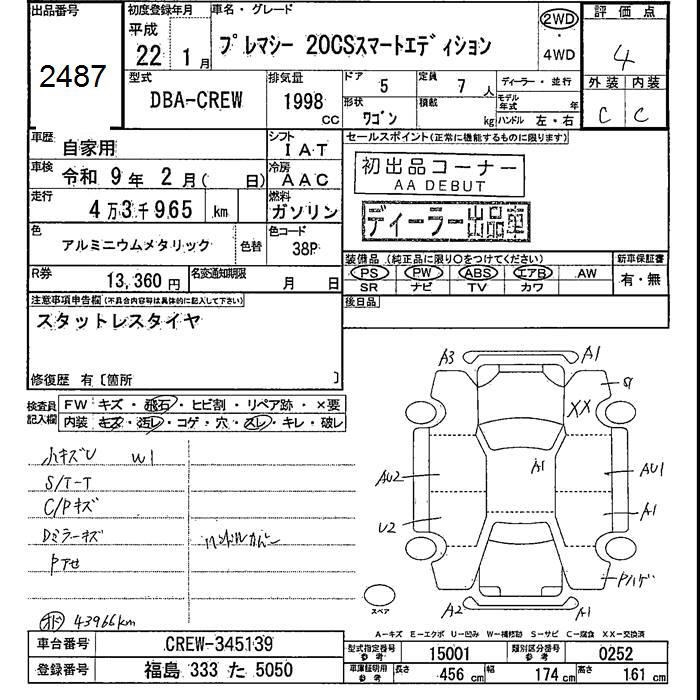 出品番号
2487
初度登録年月
平成
22 1月
車名・グレード
プレマシー 20CSスマートエディション
2WD
・
4WD
評価点
4
外装 内装
C C
型式
DBA-CREW
排気量
1998
CC
ドア 5
定員 7 人
形状 ワゴン
積載 kg
ディーラー・並行
モデル年式 年
ハンドル 左・右
車歴
自家用
シフト
IAT
車検
令和 9年 2月( 日)
冷房
AAC
走行
4万3千965 km
燃料
ガソリン
色
アルミニウムメタリック
色替
色コード
38P
R券
13,360円
名変通知期限
月 日
セールスポイント(正常に機能するものに限ります)
初出品コーナー
AA DEBUT
ディーラー出品車
装備品 (純正品に限り○をつけてください)
PS PW ABS エアB AW
SR ナビ TV カワ
新車保証書
有・無
後日品
注意事項申告欄(不具合内容等は具体的に記入して下さい)
スタットレスタイヤ
修復歴 有〔箇所 〕
検査員
記入欄
FW キズ・飛石・ヒビ割・リペア跡・×要
内装 キズ・汚レ・コゲ・穴・スレ・キレ・破レ
小キズU W1
S/T-T
C/Pキズ
Dミラーキズ
Pアせ
43966km
A3
A1
XX
A1
AU2
AU1
U2
A1
Pハゲ
A2
A1
スペア
A－キズ E－エクボ U－凹み W－補修跡 S－サビ C－腐食 XX－交換済
車台番号
CREW-345139
登録番号
福島 333 た 5050
型式指定番号
参考
15001
類別区分番号
参考
0252
車庫証明用
参考
長さ 456 cm
幅 174 cm
高さ 161 cm